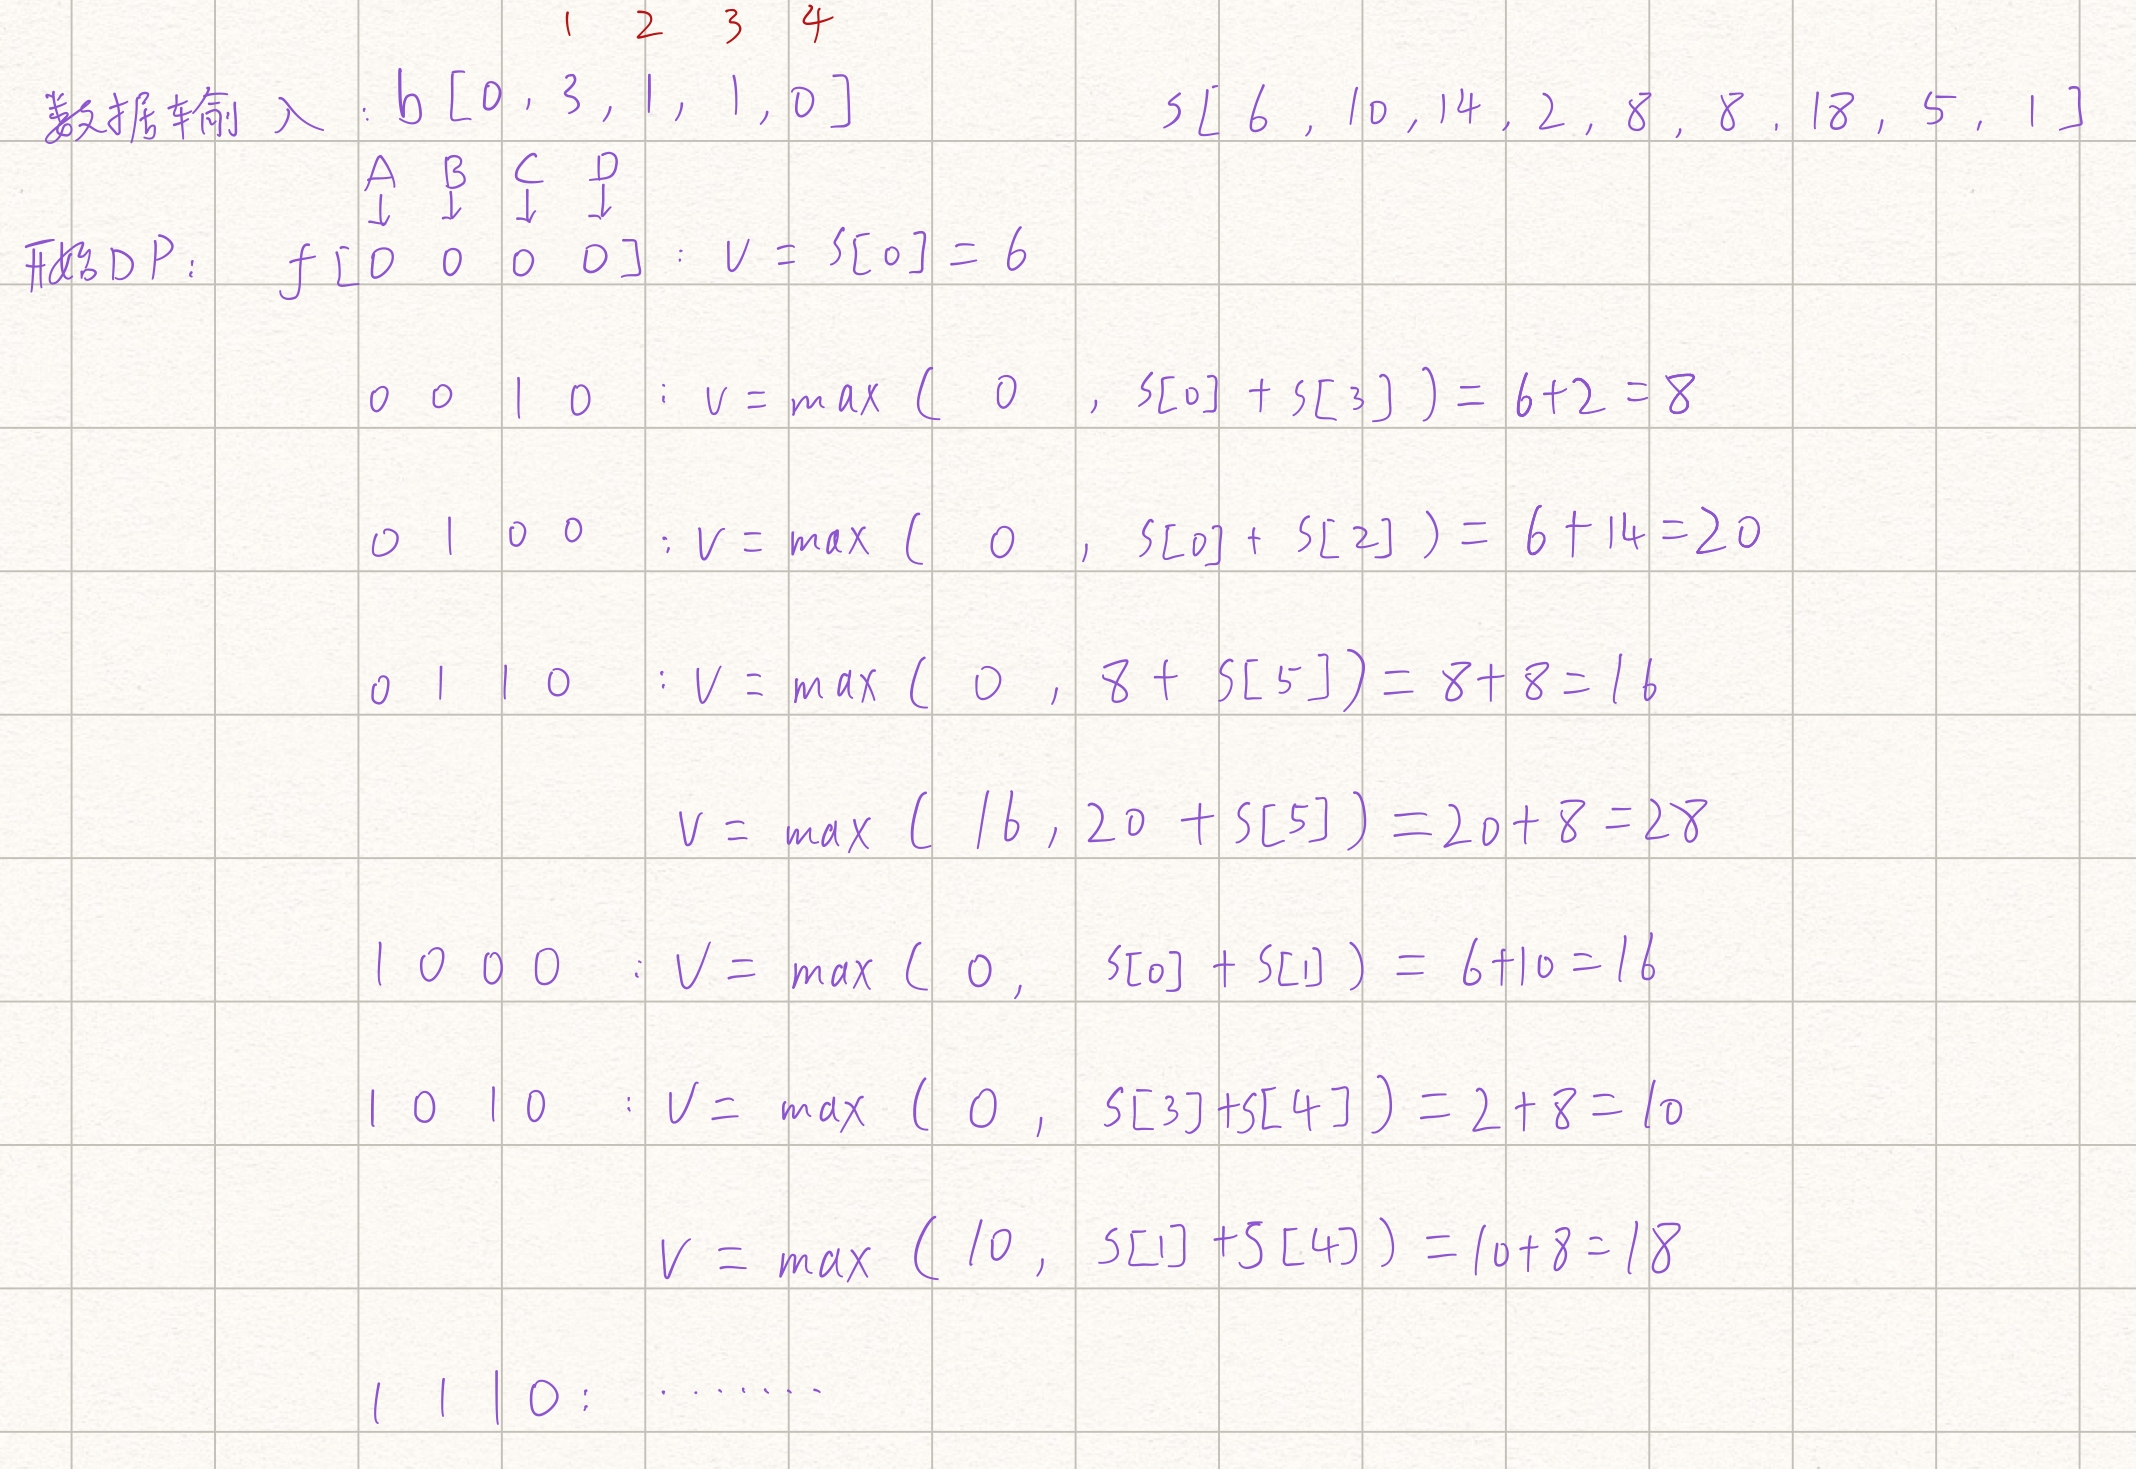 1 2 3 4
数据输入 : b [0, 3, 1, 1, 0] s[ 6, 10, 14, 2, 8, 8, 18, 5, 1 ]
A B C D
↓ ↓ ↓ ↓
开始DP: f [0 0 0 0] : v = s[0] = 6
0 0 1 0 : v = max ( 0 , s[0] + s[3] ) = 6+2 = 8
0 1 0 0 : v = max ( 0 , s[0] + s[2] ) = 6+14=20
0 1 1 0 : v = max ( 0 , 8 + s[5]) = 8+8=16
v = max ( 16, 20 + s[5] ) = 20+8=28
1 0 0 0 : v = max ( 0, s[0] + s[1] ) = 6+10=16
1 0 1 0 : v = max ( 0, s[3]+s[4] ) = 2+8=10
v = max ( 10, s[1] +s[4] ) =10+8=18
1 1 1 0 : ........